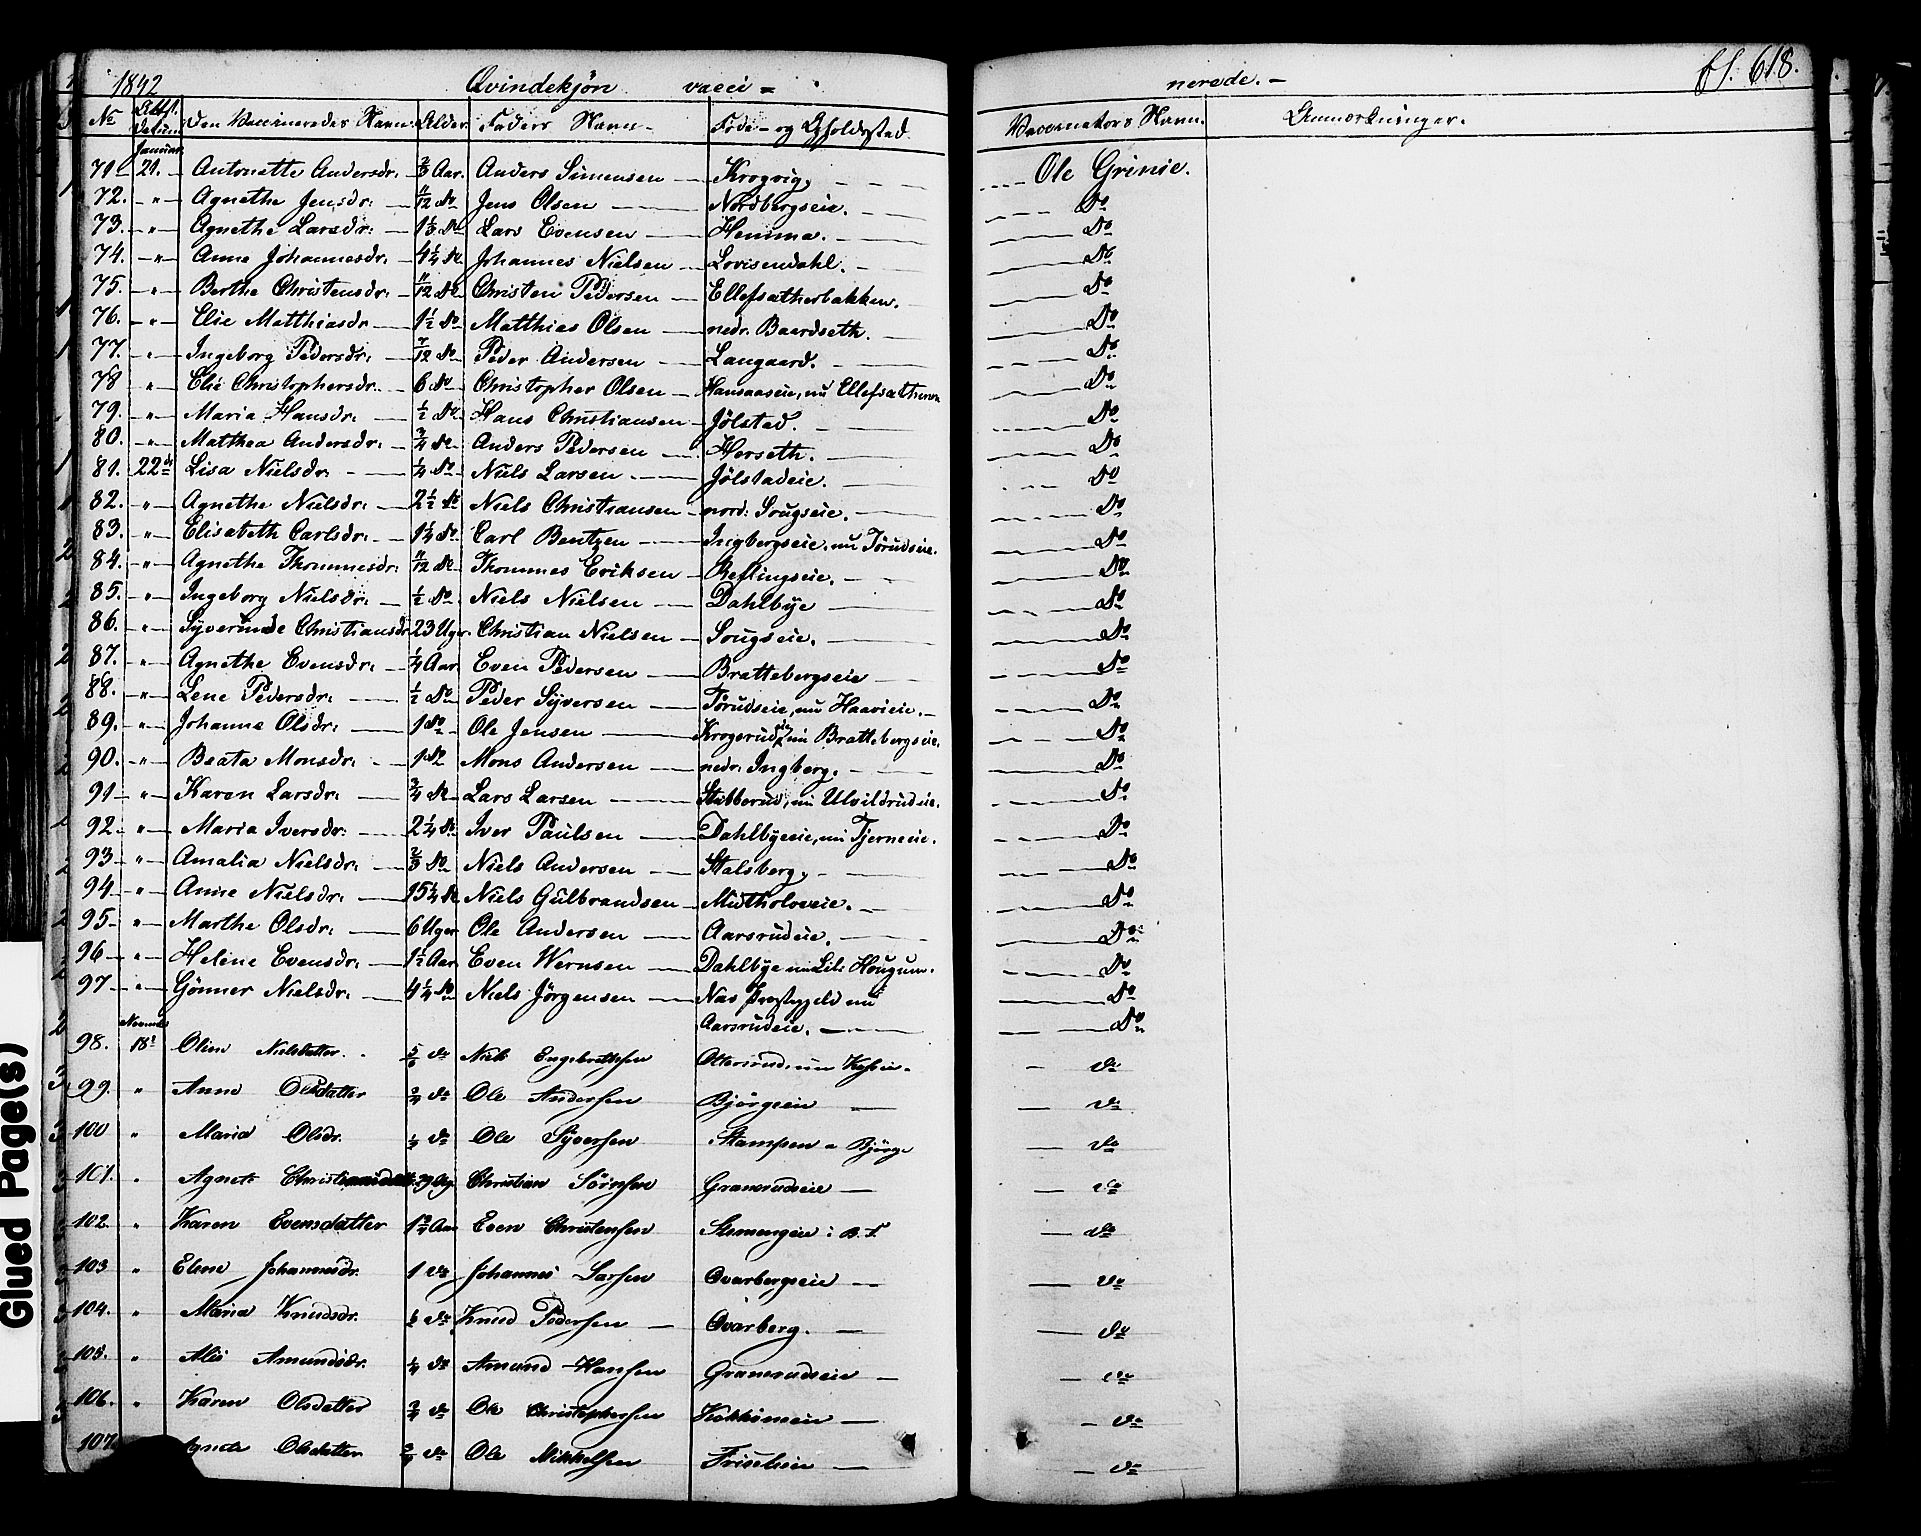 1842 Qvindekjön vacci = nerede. – fl. 618.
No Attst. Datum Den Vaccineredes Navn. Alder Faders Navn. Føde- og Opholdsstad Vaccinators Navn. Anmærkninger.
Januar
71 21. Antonette Andersdr: 2/3 Aar. Anders Simensen Krogvig. Ole Grimse.
72. " Agnethe Jensdr: 11/12 Do Jens Olsen Nordbergseie. Do
73. " Agnethe Larsdr: 1 1/3 Do Lars Evensen Hemma. Do
74. " Anne Johannesdr. 4 1/4 Do Johannes Nielsen Lovisendahl. Do
75. " Berthe Christensdr: 11/12 Do Christen Pedersen Ellefsætherbakken. Do
76. " Elie Matthiasdr 1 1/2 Do Matthias Olsen nedr: Baardseth. Do
77. " Ingeborg Pedersdr: 7/12 Do Peder Andersen Langaard. Do
78 " Elie Christophersdr. 6 Do Christopher Olsen Hansaaseie, nu Ellefsætheren Do
79. " Maria Hansdr: 1/2 Do Hans Christiansen Jølstad. Do
80. " Matthea Andersdr: 3/4 Do Anders Pedersen Herseth. Do
81. 22de Lisa Nielsdr: 1/4 Do Niels Larsen Jølstadeie. Do
82. " Agnethe Nielsdr: 2 1/2 Do Niels Christiansen nord: Sougseie. Do
83. " Elisabeth Carlsdr: 1 1/4 Do Carl Bentzen Ingbergseie, nu Törudseie. Do
84. " Agnethe Thommesdr: 11/12 Do Thommes Eriksen Reflingseie. Do
85. " Ingeborg Nielsdr: 1/2 Do Niels Nielsen Dahlbye Do
86. " Syverinde Christiansdr 23 Uger. Christian Nielsen Sougseie. Do
87. " Agnethe Evensdr: 1/4 Aar. Even Pedersen Brattebergseie Do
88. " Lene Pedersdr: 1/2 Do Peder Syversen Törudseie, nu Haavieie. Do
89. " Johanne Olsdr: 1 Do Ole Jensen Krogerud, nu Brattebergseie. Do
90. " Beata Monsdr: 1 Do Mons Andersen nedr: Ingberg. Do
91 " Karen Larsdr: 3/4 Do Lars Larsen Stubberud, nu Ulvildrudeie. Do
92. " Maria Iversdr: 2 1/4 Do Iver Paulsen Dahlbyeeie, nu Tjerneeie. Do
93 " Amalia Nielsdr: 2/3 Do Niels Andersen Stalsberg. Do
94 " Anne Nielsdr: 15 1/4 Do Niels Gulbrandsen Midtholoveie. Do
95 " Marthe Olsdr: 6 Uger Ole Andersen Aarsrudeie. Do
96 " Helene Evensdr: 1 1/2 Aar. Even Wernsen Dahlbye nu Lil: Hougum. Do
97 " Gönner Nielsdr: 4 1/4 Do Niels Jörgensen Næs Prestegjeld nu Do
Aarsrudeie. Do
98. 18. Oline Nielsdatter 5/6 do Niels Engebrethsen do
99. " Anne Olsdatter 3/4 do Ole Andersen Bjørgeeie do
100 " Maria Olsdr. 1/2 do Ole Syversen Stampen a Bjørge do
101. " Agnete 29 Ug. Christian Sörensen Granerudseie do
102. " Karen Evensdatter 1 3/4 Aar Even Christensen i B. F. do
103 " Elene Johannesdr. 1 do Johannes Larsen Ovarbergseie do
104. " Maria Knudsdr. do Knud Pedersen Ovarberg. do
105. " Alis Amundsdr. 1/4 do Amund Hansen Granerudseie do
106. " Karen Olsdatter 3/4 do Ole Christophersen do
107 Olsdatter 3/4 do Ole Mikkelsen do
Glued Page(s)